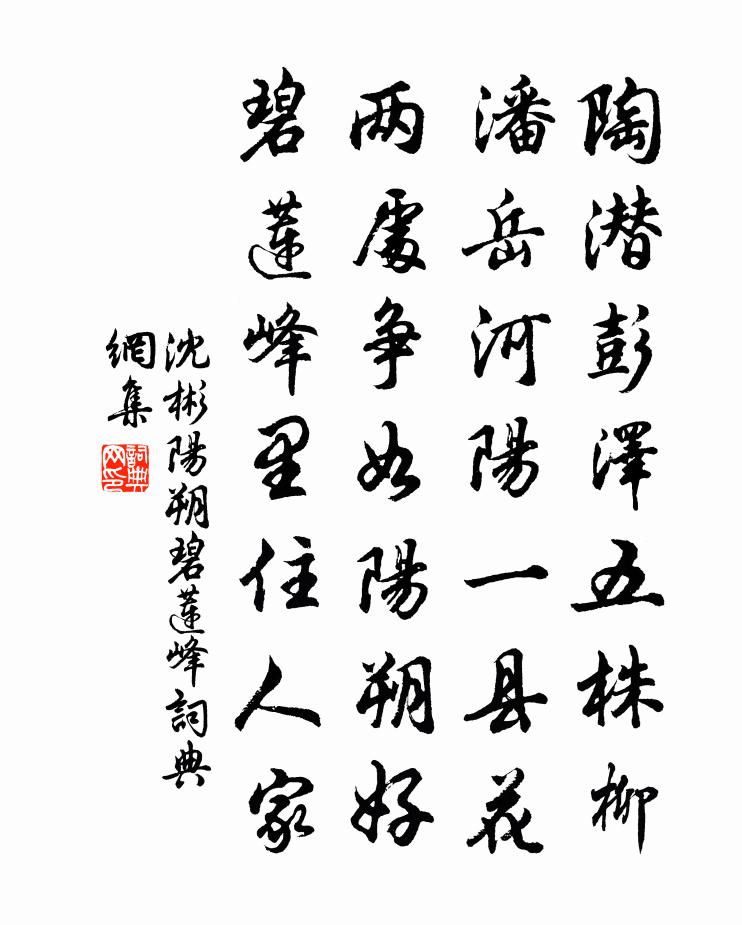 陶潛彭澤五株柳
潘岳河陽一县花
两處争如陽朔好
碧蓮峰里住人家
沈彬陽朔碧蓮峰詞典
網集
詞典
网印